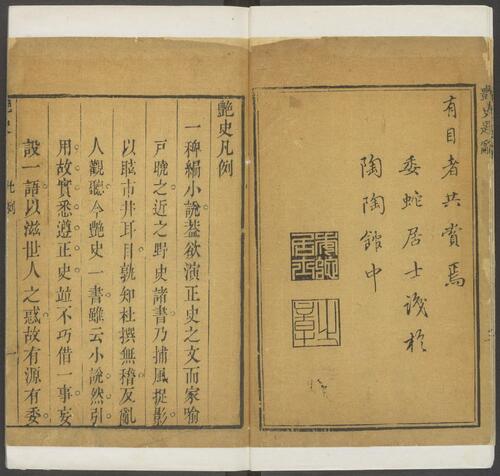 艷史題辭
有目者共賞焉
委蛇居士識於
陶陶館中
艷史凡例
一稗編小說蓋欲演正史之文而家喻
戸曉之近之野史諸書乃捕風捉影
以眩市井耳目孰知杜撰無稽反亂
人觀聽今艷史一書雖云小說然引
用故實悉遵正史並不巧借一事妄
設一語以滋世人之惑故有源有委
艷史
凡例
一